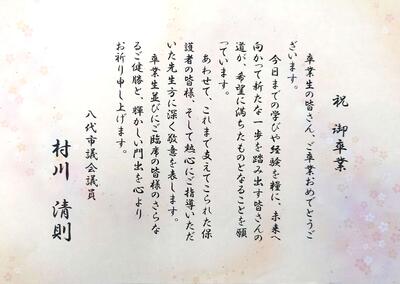 祝 御卒業
卒業生の皆さん、ご卒業おめでとうご
ざいます。
今日までの学びや経験を糧に、未来へ
向かって新たな一歩を踏み出す皆さんの
道が、希望に満ちたものとなることを願
っています。
あわせて、これまで支えてこられた保
護者の皆様、そして熱心にご指導いただ
いた先生方に深く敬意を表します。
卒業生並びにご臨席の皆様のさらな
るご健勝と、輝かしい門出を心より
お祈り申し上げます。
八代市議会議員
村川 清則